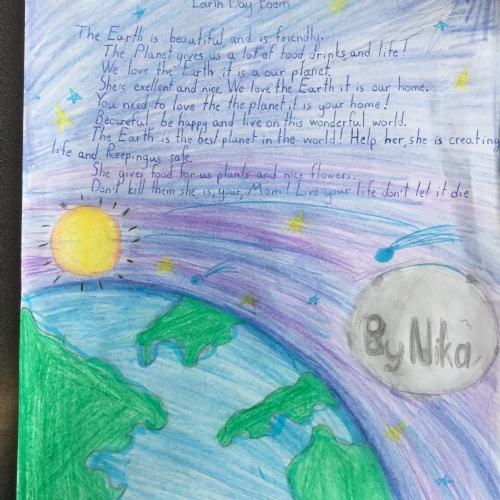 Earth Day Poem
The Earth is beautiful and is friendly.
The Planet gives us a lot of food, drinks and life!
We love the Earth it is a our planet.
She's exellent and nice. We love the Earth it is our home.
You need to love the the planet, it is your home!
Becareful be happy and live on this wonderful world.
The Earth is the best planet in the world! Help her, she is creating
life and Keepingus safe.
She gives food for us plants and nice flowers.
Don't kill them she, is, your, Mom! Live your life don't let it die
By Nika